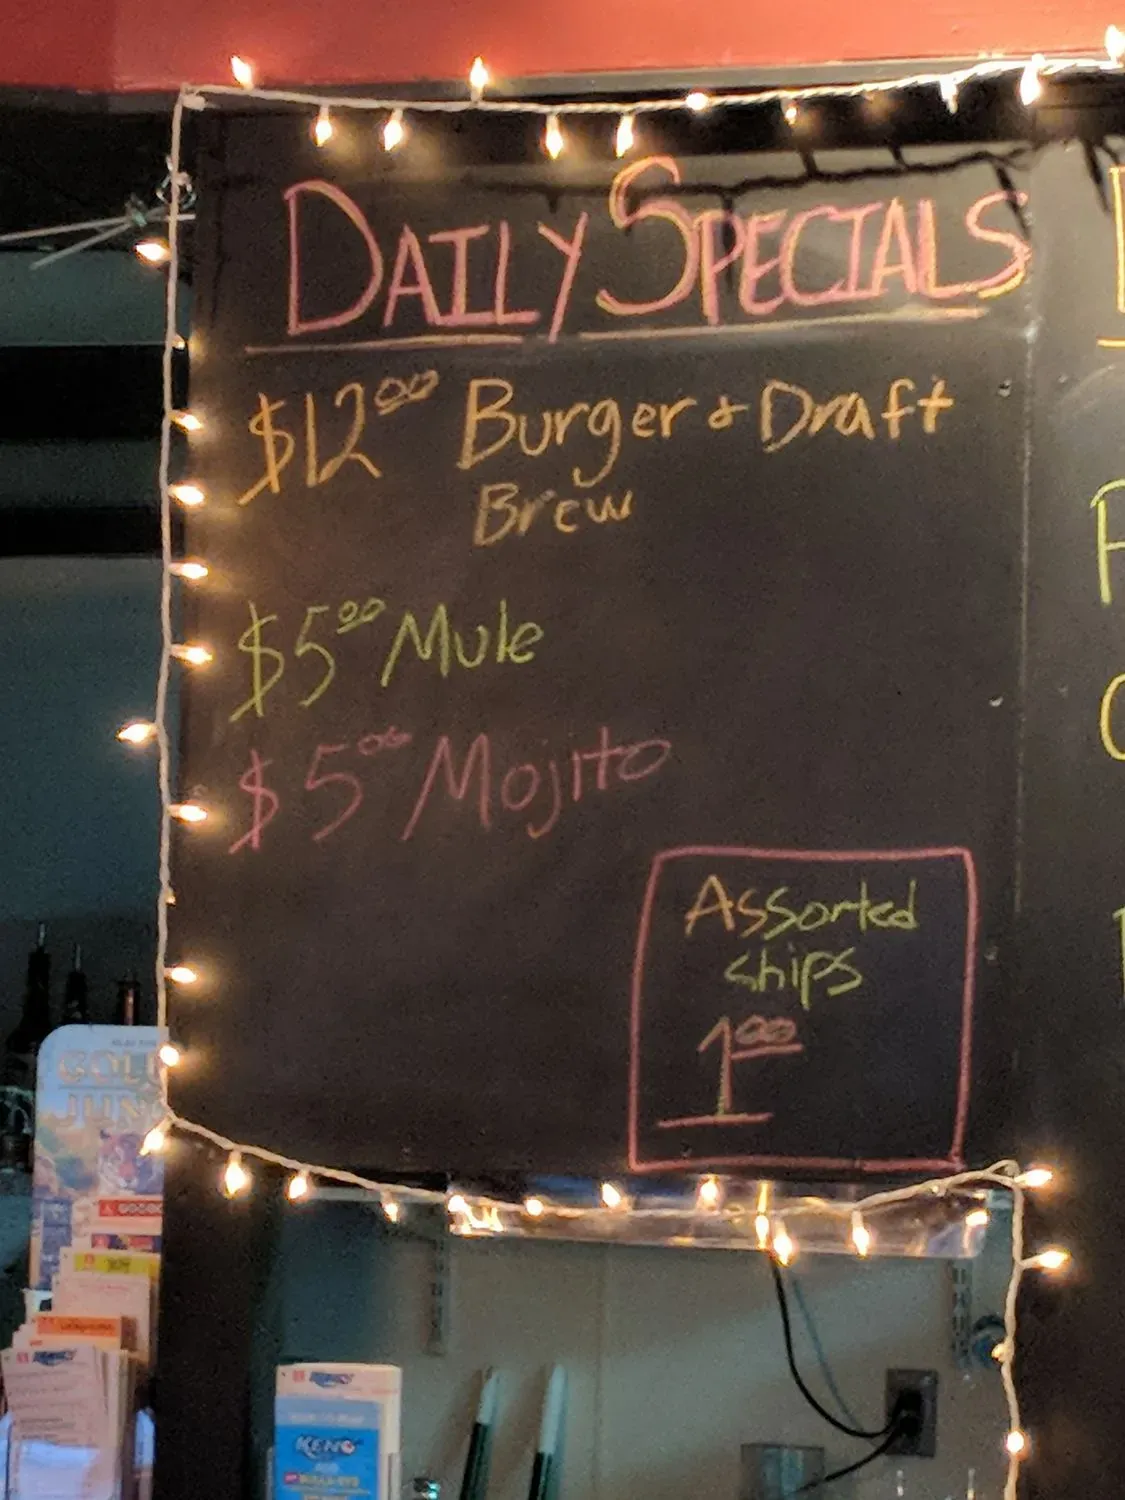 DAILY SPECIALS
$12⁰⁰ Burger & Draft
Brew
$5⁰⁰ Mule
$5⁰⁰ Mojito
Assorted
chips
1⁰⁰
KENO